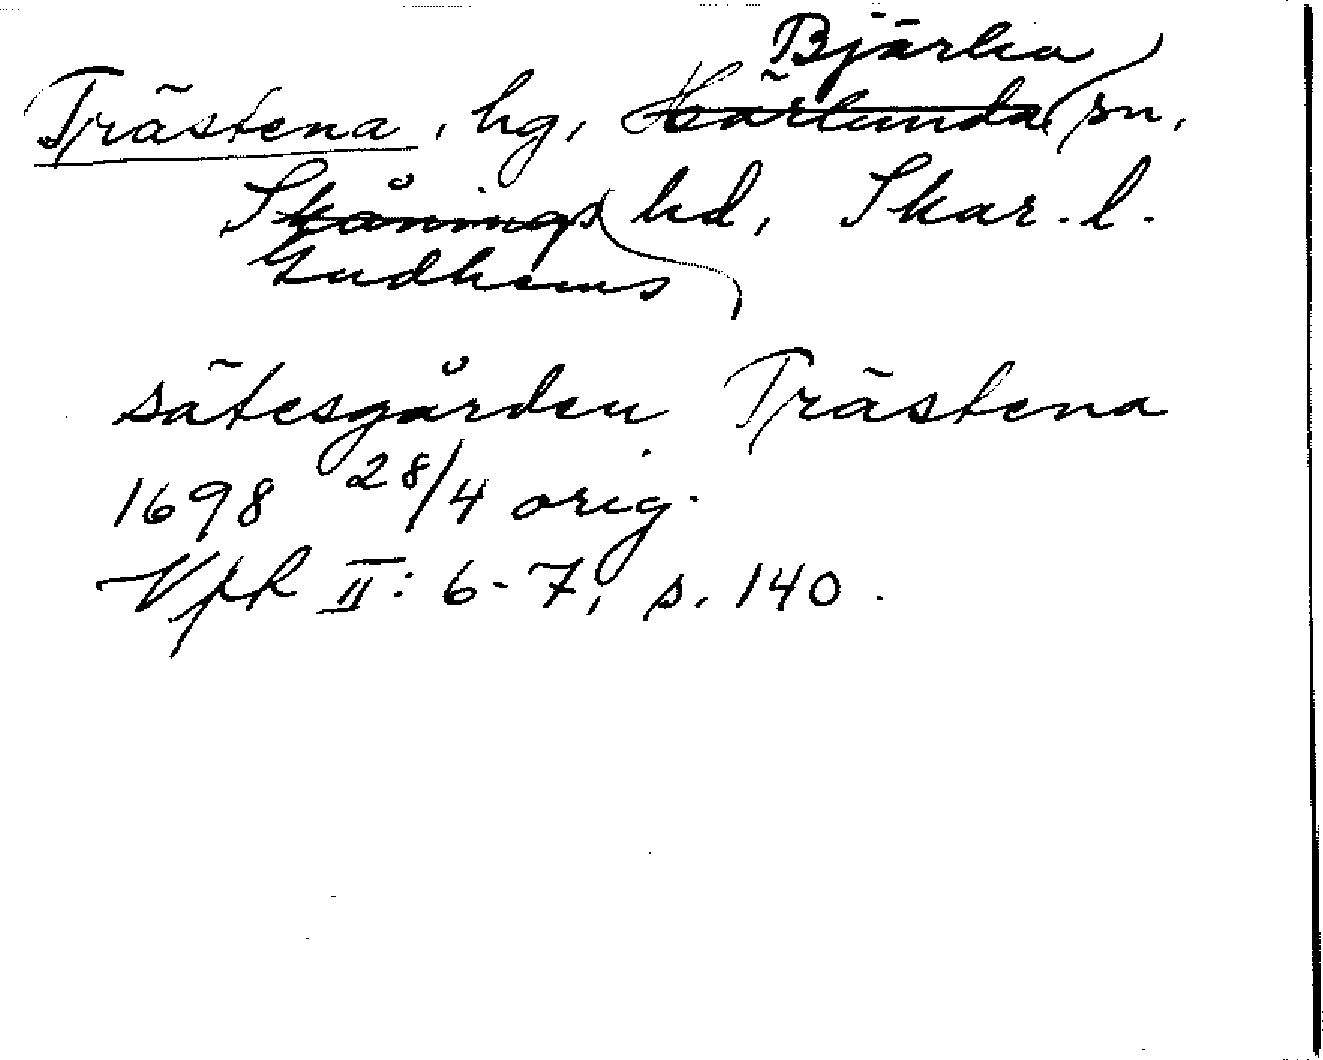 Bjärka
Trästena, hg, Härlunda sn,
Skånings hd, Skar. l.
Gudhems
sätesgården Trästena
1698 28/4 orig.
VFR II: 6-7, s. 140.